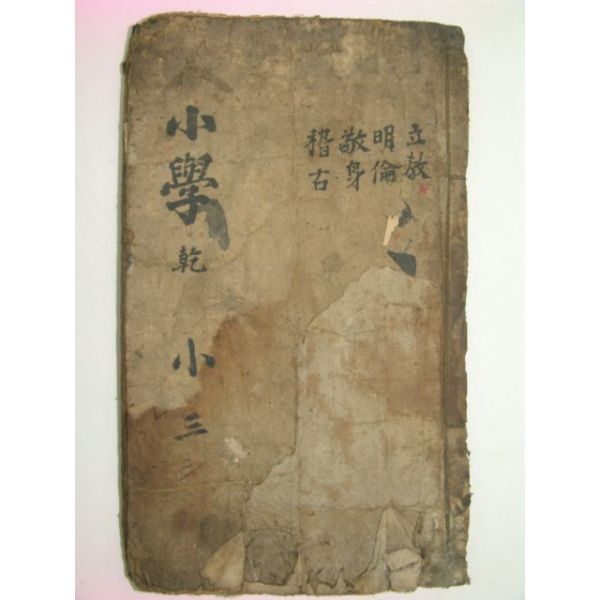 立教
明倫
敬身
稽古
小學 乾
小三三